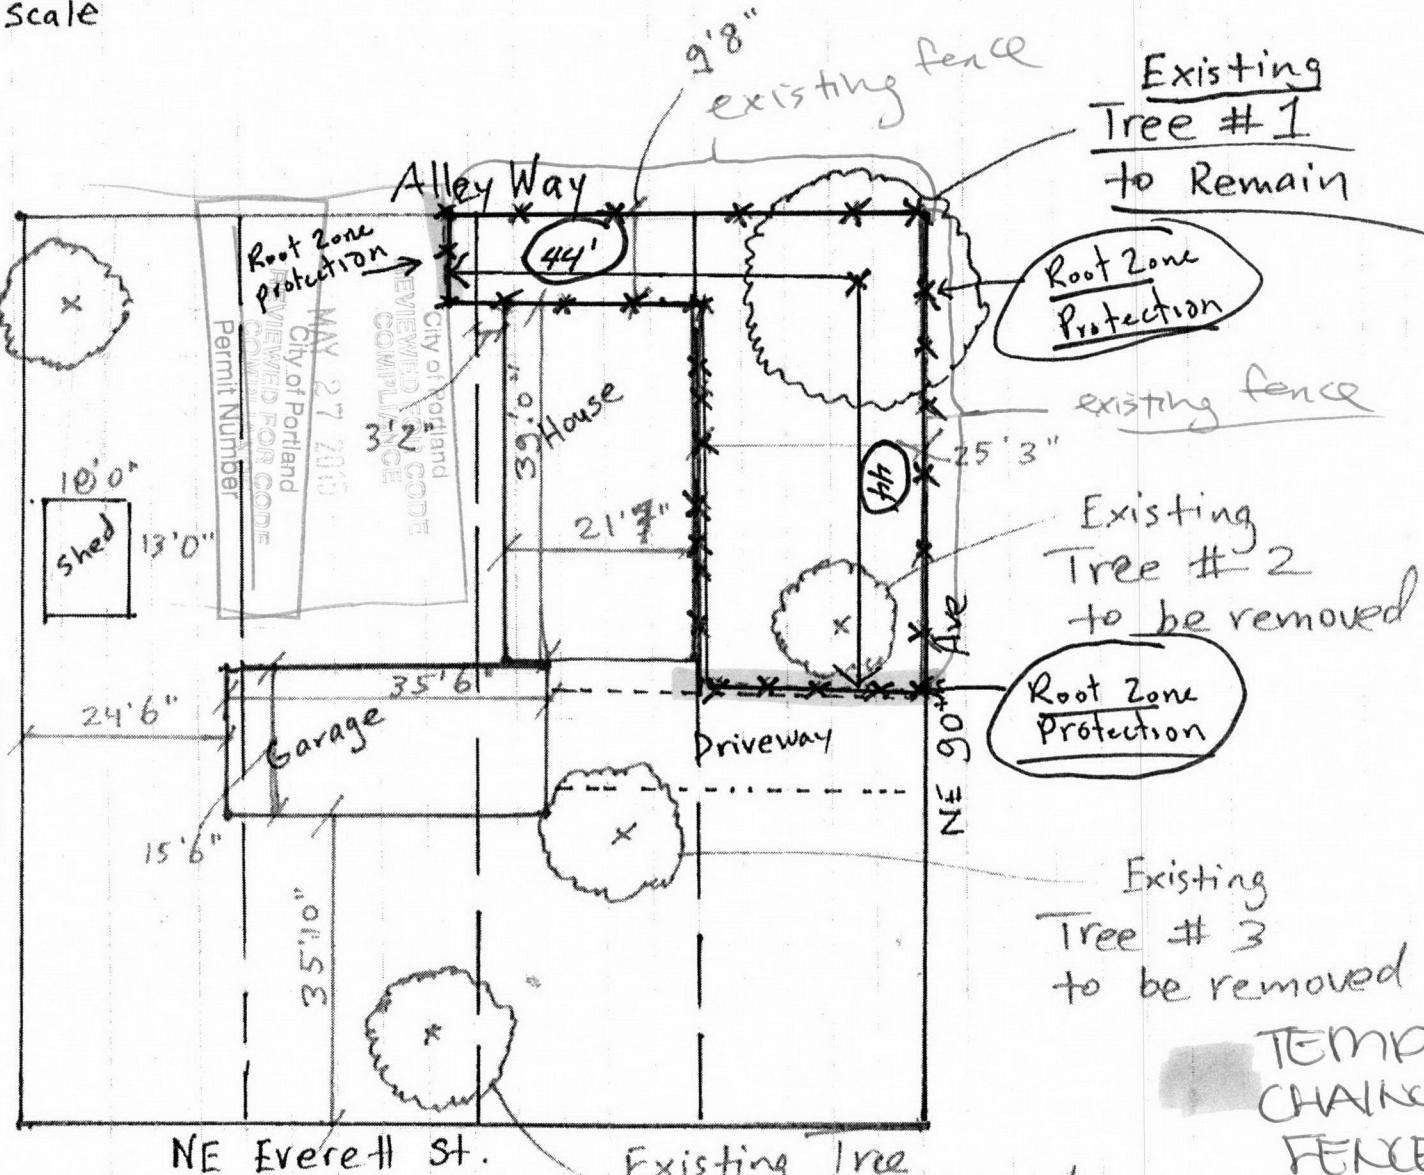 scale
9'8"
existing fence
Existing
Tree # 1
to Remain
Alley Way
Root Zone
Protection
44'
Root Zone
Protection
City of Portland
REVIEWED FOR CODE
COMPLIANCE
MAY 27
City of Portland
REVIEWED FOR CODE
Permit Number
3'2"
39'0"
House
existing fence
25'3"
44
10'0"
shed
13'0"
21'
Existing
Tree # 2
to be removed
NE 90th Ave
35'6"
24'6"
Garage
Driveway
Root Zone
Protection
15'6"
35'0"
Existing
Tree # 3
to be removed
TEMP
CHAIN
FENCE
NE Everett St.
Existing Tree